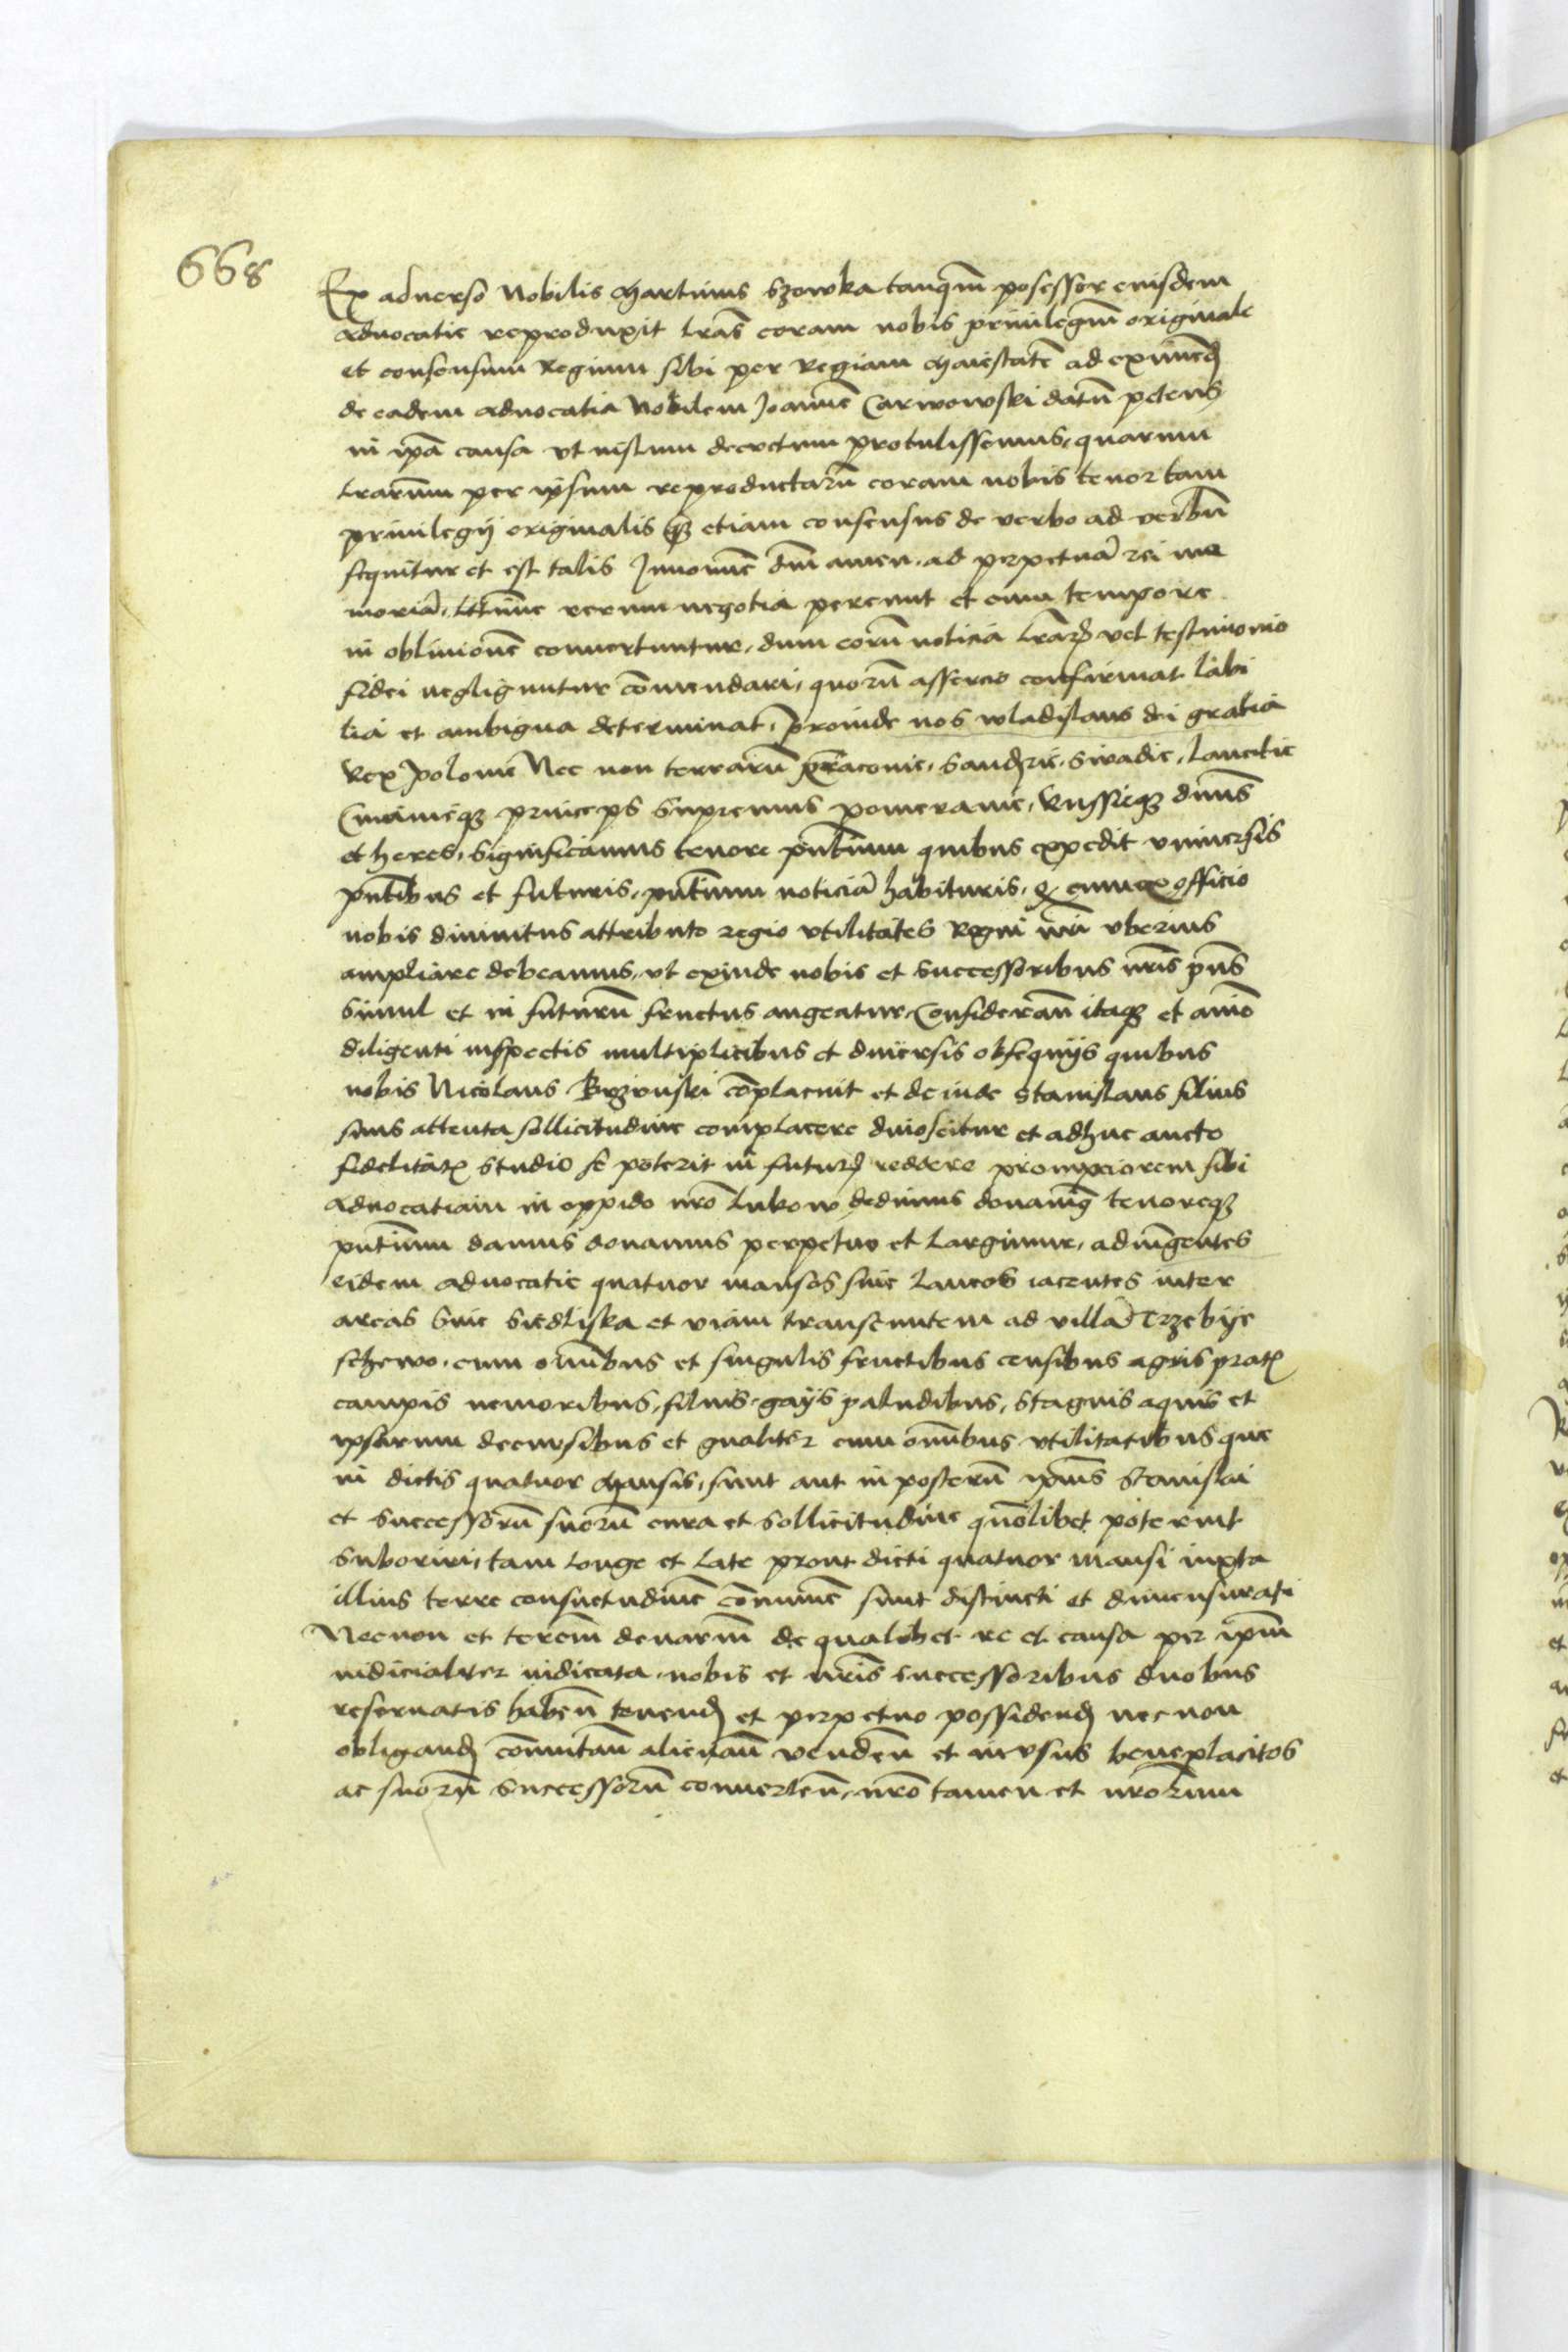 668
Ex aduerso Nobilis Martinus Szowka tanq̃m posessor eiusdem
aduocatie reproduxit lrãs coram nobis priuilegiũ originale
et consensum Regium sibi per Regiam Maiestatẽ ad eximẽd
de eadem aduocatia Nobilem Joannẽ Carwowski datũ petens
in ip̃a causa vt iustum decretum protulissemus, quarum
lrarum per ipsum reproductarũ coram nobis tenor tam
priuilegij originalis q̃ etiam consensus de verbo ad verbũ
sequitur et est talis Jn nomĩe dñi amen. ad perpetuã rei me
moriã. rerum negotia pereunt et cum tempore
in obliuionẽ conuertuntur, dum eorũ noticia lrarꝫ vel testimonio
fidei negliguntur cõmendari, quorũ assercio confirmat labi
lia et ambigua determinat, Proinde nos wladislaus dei gratia
Rex Polonie Nec non terrarũ Cracouie, Sandꝫie, Siradie, Lancicie
Cuiauieqꝫ princeps Supremus pomeranie, Russieqꝫ dñus
et heres, Significamus tenore pñtium quibus expedit vniuersis
pñtibus et futuris, pñtium noticiã habituris, q̃ cum ex officio
nobis diuinitus attributo regio vtilitates Regni nr̃i vberius
ampliare debeamus, vt exinde nobis et Successoribus nr̃is pñs
Simul et in futurũ fructus augeatur, Considerañ itaqꝫ et aĩo
diligenti inspectis multiplicibus et diuersis obsequijs quibus
nobis Nicolaus complacuit et de inde Stanislaus filius
suus attenta sollicitudine complacere dinoscitur et adhuc aucto
fidelitatꝭ studio se poterit in futurꝫ reddere prompciorem sibi
Aduocatiam in oppido nrõ Lukow dedimus donauimꝰ tenoreqꝫ
pñtium damus donamus perpetuo et largimur, adiũgentes
eidem aduocatie quatuor mansos siue laneos iacentes inter
areas Siue Siedliska et viam transeuntem ad villã Trzebije
schewo, cum oĩbus et singulis fructibus censibus agris pratꝭ
campis nemoribus, siluis, gays paludibus, stagnis aquis et
ipsarum decursibus et gn̄aliter cum oĩbus vtilitatibus que
in dictis quatuor Mansis, sunt aut in posterũ ip̃ius Stanislai
et Successorũ suorũ cura et sollicitudine quõlibet poterint
Suboriri, tam longe et late prout dicti quatuor mansi iuxta
illius terre consuetudinẽ cõmunẽ sunt distincti et dimensurati
Necnon et tercĩm denariũ de qualibet re et causa per ip̃m
iudicialiter iudicata, nobis et nr̃is successoribus duobus
reseruatis habeñ tenendꝫ et perpetuo possidendꝫ necnon
obligandꝫ cõmutañ alienañ vendeñ et in vsus beneplacitos
ac suorũ Successorũ conuerteñ, nrõ tamen et nrõrum